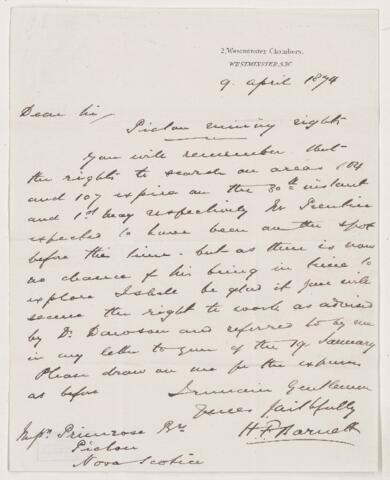 2, Westminster Chambers,
WESTMINSTER, S.W.
9 April 1874
Dear Sir,
Pictou mining rights
You will remember that
the rights to search on areas 104
and 107 expire on the 30th instant
and 1st May respectively Mr
expected to have been on the spot
before this time - but as there is now
no chance of his being in time to
explore I shall be glad if you will
secure the right to work as advised
by Dr. Dawson and referred to by me
in my letter to you of the 19 January
Please draw on me for the expenses
as before I remain Gentlemen
Yours faithfully
H. F. Barnett
Messrs. Primrose Brs
Pictou
Nova Scotia